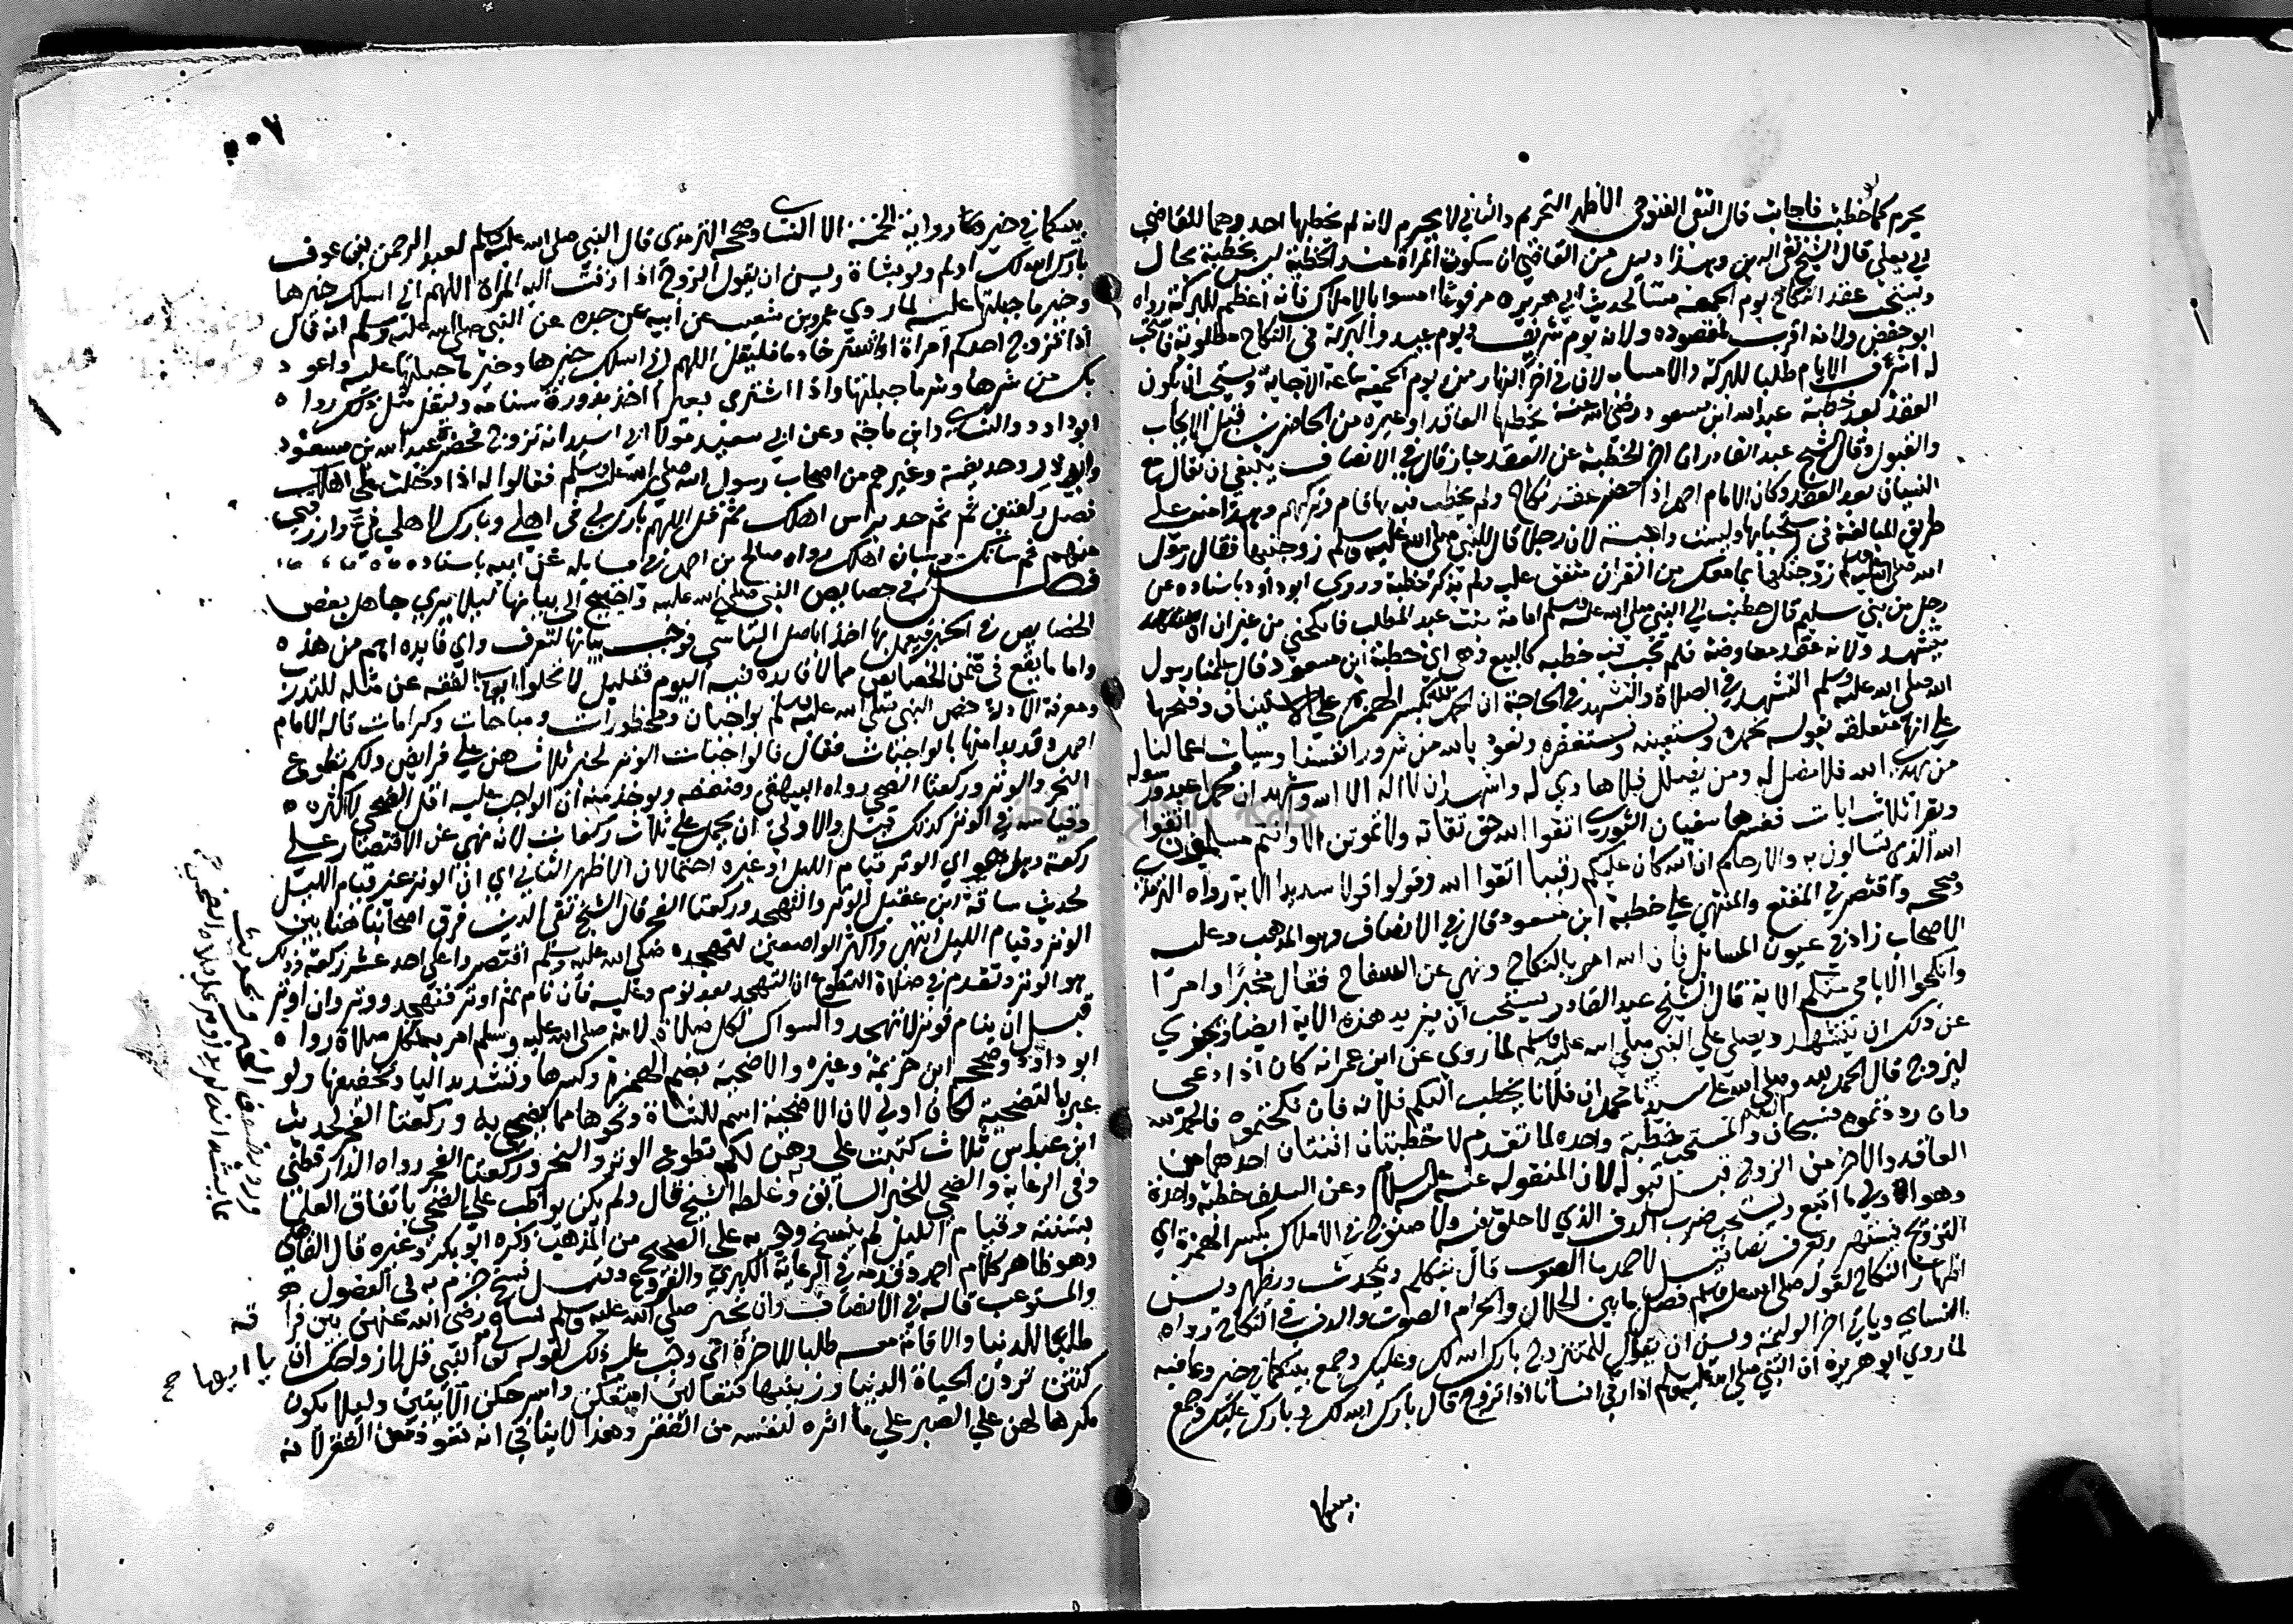 يحرم كما لو خطبت فاجابت قال التقي الفتوحي الاظهر التحريم والثاني لا يحرم لانه لم يخطبها احد وهما للقاضي
ابي يعلي قال الشيخ تقي الدين وهذا دليل من القاضي ان سكوت المراة عند الخطبة ليس بخطبة بحال
ويستحب عقد النكاح يوم الجمعة مسا لحديث ابي هريرة مرفوعا امسوا بالاملاك فانه اعظم للبركة رواه
ابو حفص ولانه اقرب لمقصوده ولانه يوم شريف ويوم عيد والبركة في النكاح مطلوبة فاستحب
له اشرف الايام طلبا للبركة والامساء لان في اخر النهار من يوم الجمعة ساعة الاجابة ويستحب ان يكون
العقد بعد خطبة عبد الله ابن مسعود رضي الله عنه يخطبها العاقد او غيره من الحاضرين قبل الايجاب
والقبول وقال الشيخ عبد القادر ان اخر الخطبة عن العقد جاز قال في الانصاف ينبغي ان تقال مع
النسيان بعد العقد وكان الامام احمد اذا حضر عقد نكاح ولم يخطب فيه بها قام وتركهم وهذا منه علي
طريق المبالغة في استحبابها وليست واجبة لان رجلا قال للنبي صلى الله عليه وسلم زوجنيها فقال رسول
الله صلى الله عليه وسلم زوجتكها بما معك من القران متفق عليه ولم يذكر خطبة وروى ابو داود باسناده عن
رجل من بني سليم قال خطبت الي النبي صلى الله عليه وسلم امامة بنت عبد المطلب فانكحني من غير ان
يتشهد ولانه عقد معاوضة فلم تجب فيه خطبة كالبيع وهي اي خطبة ابن مسعود قال علمنا رسول
الله صلى الله عليه وسلم التشهد في الصلاة والتشهد في الحاجة ان الحمد لله بكسر الهمزة علي الاستيناف وفتحها
علي انها متعلقة بقوله نحمده ونستعينه ونستغفره ونعوذ بالله من شرور انفسنا وسيات اعمالنا
من يهدي الله فلا مضل له ومن يضلل فلا هادي له واشهد ان لا اله الا الله واشهد ان محمدا عبده ورسوله
ويقرا ثلاث ايات ففسرها سفيان الثوري اتقوا الله حق تقاته ولا تموتن الا وانتم مسلمون اتقوا
الله الذي تسالون به والارحام ان الله كان عليكم رقيبا اتقوا الله وقولوا قولا سديدا الاية رواه الترمذي
وصححه واقتصر في المقنع والمنتهي علي خطبة ابن مسعود قال في الانصاف وهو المذهب وعليه
الاصحاب زاد في عيون المسائل فان الله امر بالنكاح ونهي عن السفاح فقال مخبرا وامرا
وانكحوا الايامي منكم الاية قال الشيخ عبد القادر يستحب ان يزيد هذه الاية ايضا ويجزي
عن ذلك ان يتشهد ويصلي علي النبي صلى الله عليه وسلم لما روى عن ابن عمر انه كان اذا دعي
ليزوج قال الحمد لله وصلى الله علي سيدنا محمد ان فلانا يخطب اليكم فلانة فان انكحتموه فالحمد لله
وان رددتموه فسبحان الله والمستحب خطبة واحدة لما تقدم لا خطبتان اثنتان احداهما من
العاقد والاخر من الزوج قبل قبوله لان المنقول عنه عليه السلام وعن السلف خطبة واحدة
وهو اولي ما اتبع ويستحب ضرب الدف الذي لا حلق فيه ولا صنوج في الاملاك بكسر الهمزة اي
التزويج ليشتهر ويعرف نصا قيل لاحمد ما الصوت قال يتكلم ويتحدث ويظهر ويسن
اظهار النكاح لقوله صلى الله عليه وسلم فصل ما بين الحلال والحرام الصوت والدف في النكاح رواه
النساي وياتي اخر الوليمة ويسن ان يقال للمتزوج بارك الله لك وعليك وجمع بينكما في خير وعافية
لما روي ابو هريرة ان النبي صلى الله عليه وسلم كان اذا رفي انسانا اذا تزوج قال بارك الله لك وبارك عليك وجمع
بينكما
بينكما في خير رواه الخمسة الا النسائي وصححه الترمذي قال النبي صلى الله عليه وسلم لعبد الرحمن بن عوف
بارك الله لك اولم ولو بشاة ويسن ان يقول الزوج اذا زفت اليه المراة اللهم اني اسلك خيرها
وخير ما جبلتها عليه لما روي عمرو بن شعيب عن ابيه عن جده عن النبي صلى الله عليه وسلم انه قال
اذا تزوج احدكم امراة او اشترى خادما فليقل اللهم اني اسلك خيرها وخير ما جبلتها عليه واعوذ
بك من شرها وشر ما جبلتها واذا اشترى بعيرا اخذ بذروة سنامه وليقل مثل ذلك رواه
ابو داود والنسائي وابن ماجة وعن ابي سعيد مولا ابي اسيد انه تزوج فحضره عبد الله بن مسعود
وابو ذر وحذيفة وغيرهم من اصحاب رسول الله صلى الله عليه وسلم فقالوا له اذا دخلت على اهلك
فصل ركعتين ثم خذ براس اهلك ثم قل اللهم بارك لي في اهلي وبارك لاهلي في وارزقني
منهم ثم شانك وشان اهلك رواه صالح بن احمد في مسايله عن ابيه باسناده
فصل في خصايص النبي صلى الله عليه واحتيج الي بيانها ليلا يري جاهل بعض
الخصايص في الخبر فيعمل بها اخذا باصل التاسي فوجب بيانها لتعرف واي فايدة اهم من هذه
واما ما يقع في ضمن الخصايص مما لا فايدة فيه اليوم فقليل لا تخلوا ابواب الفقه عن مثله للتدرب
ومعرفة الادلة خص النبي صلى الله عليه وسلم بواجبات ومحظورات ومباحات وكرامات قاله الامام
احمد وقد بدا منها بالواجبات فقال فالواجبات الوتر لخبر ثلاث هن علي فرايض ولكم تطوع
النحر والوتر وركعتا الضحي رواه البيهقي وضعفه ويوخذ منه ان الواجب عليه اقل الضحي لا اكثره
وقياسه في الوتر كذلك قيل والاولى ان يحمل علي ثلاث ركعات لانه نهي عن الاقتصار علي
ركعة وهل هو اي الوتر قيام الليل او غيره احتمالان الاظهر الثاني اي ان الوتر غير قيام الليل
لحديث ساقه ابن عقيل الوتر والتهجد وركعتا الفجر قال الشيخ تقي الدين فرق اصحابنا هنا بين
الوتر وقيام الليل انتهي واكثر الواصفين لتهجده صلى الله عليه وسلم اقتصروا علي احد عشر ركعة وذلك
هو الوتر وتقدم في صلاة التطوع ان التهجد بعد نوم وعليه فان نام ثم اوتر فتهجد ووتر وان اوتر
قبل ان ينام فوتر لا تهجد والسواك لكل صلاة لانه صلى الله عليه وسلم امر به لكل صلاة رواه
ابو داود وصححه ابن خزيمة وغيره والاضحية بضم الهمزة وكسرها وتشديد اليا وتخفيفها ولو
عبر بالتضحية لكان اولي لان الاضحية اسم للشاة ونحوها مما يضحي به وركعتا الفجر لحديث
ابن عباس ثلاث كتبت علي وهن لكم تطوع الوتر والنحر وركعتا الفجر رواه الدارقطني
وفي الرعاية والضحي للخبر السابق وغلطه الشيخ قال ولم يكن يواظب علي الضحي باتفاق العلما
بسنته وقيام الليل لم ينسخ وجوبه علي الصحيح من المذهب ذكره ابو بكر وغيره قال القاضي
وهو ظاهر كلام احمد وقدمه في الرعاية الكبري والفروع وقيل نسخ جزم به في الفصول
والمستوعب قاله في الانصاف وان يخير صلى الله عليه وسلم نساه رضي الله عنهن بين فراقه
طلبا للدنيا والاقامة معه طلبا للاخرة اي وجب عليه ذلك لقوله تعالى يا ايها النبي قل لازواجك ان
كنتن تردن الحياة الدنيا وزينتها فتعالين امتعكن واسرحكن الايتين وليلا يكون
مكرها لهن علي الصبر علي ما اثره لنفسه من الفقر وهذا لا ينافي انه تعوذ من الفقر لانه